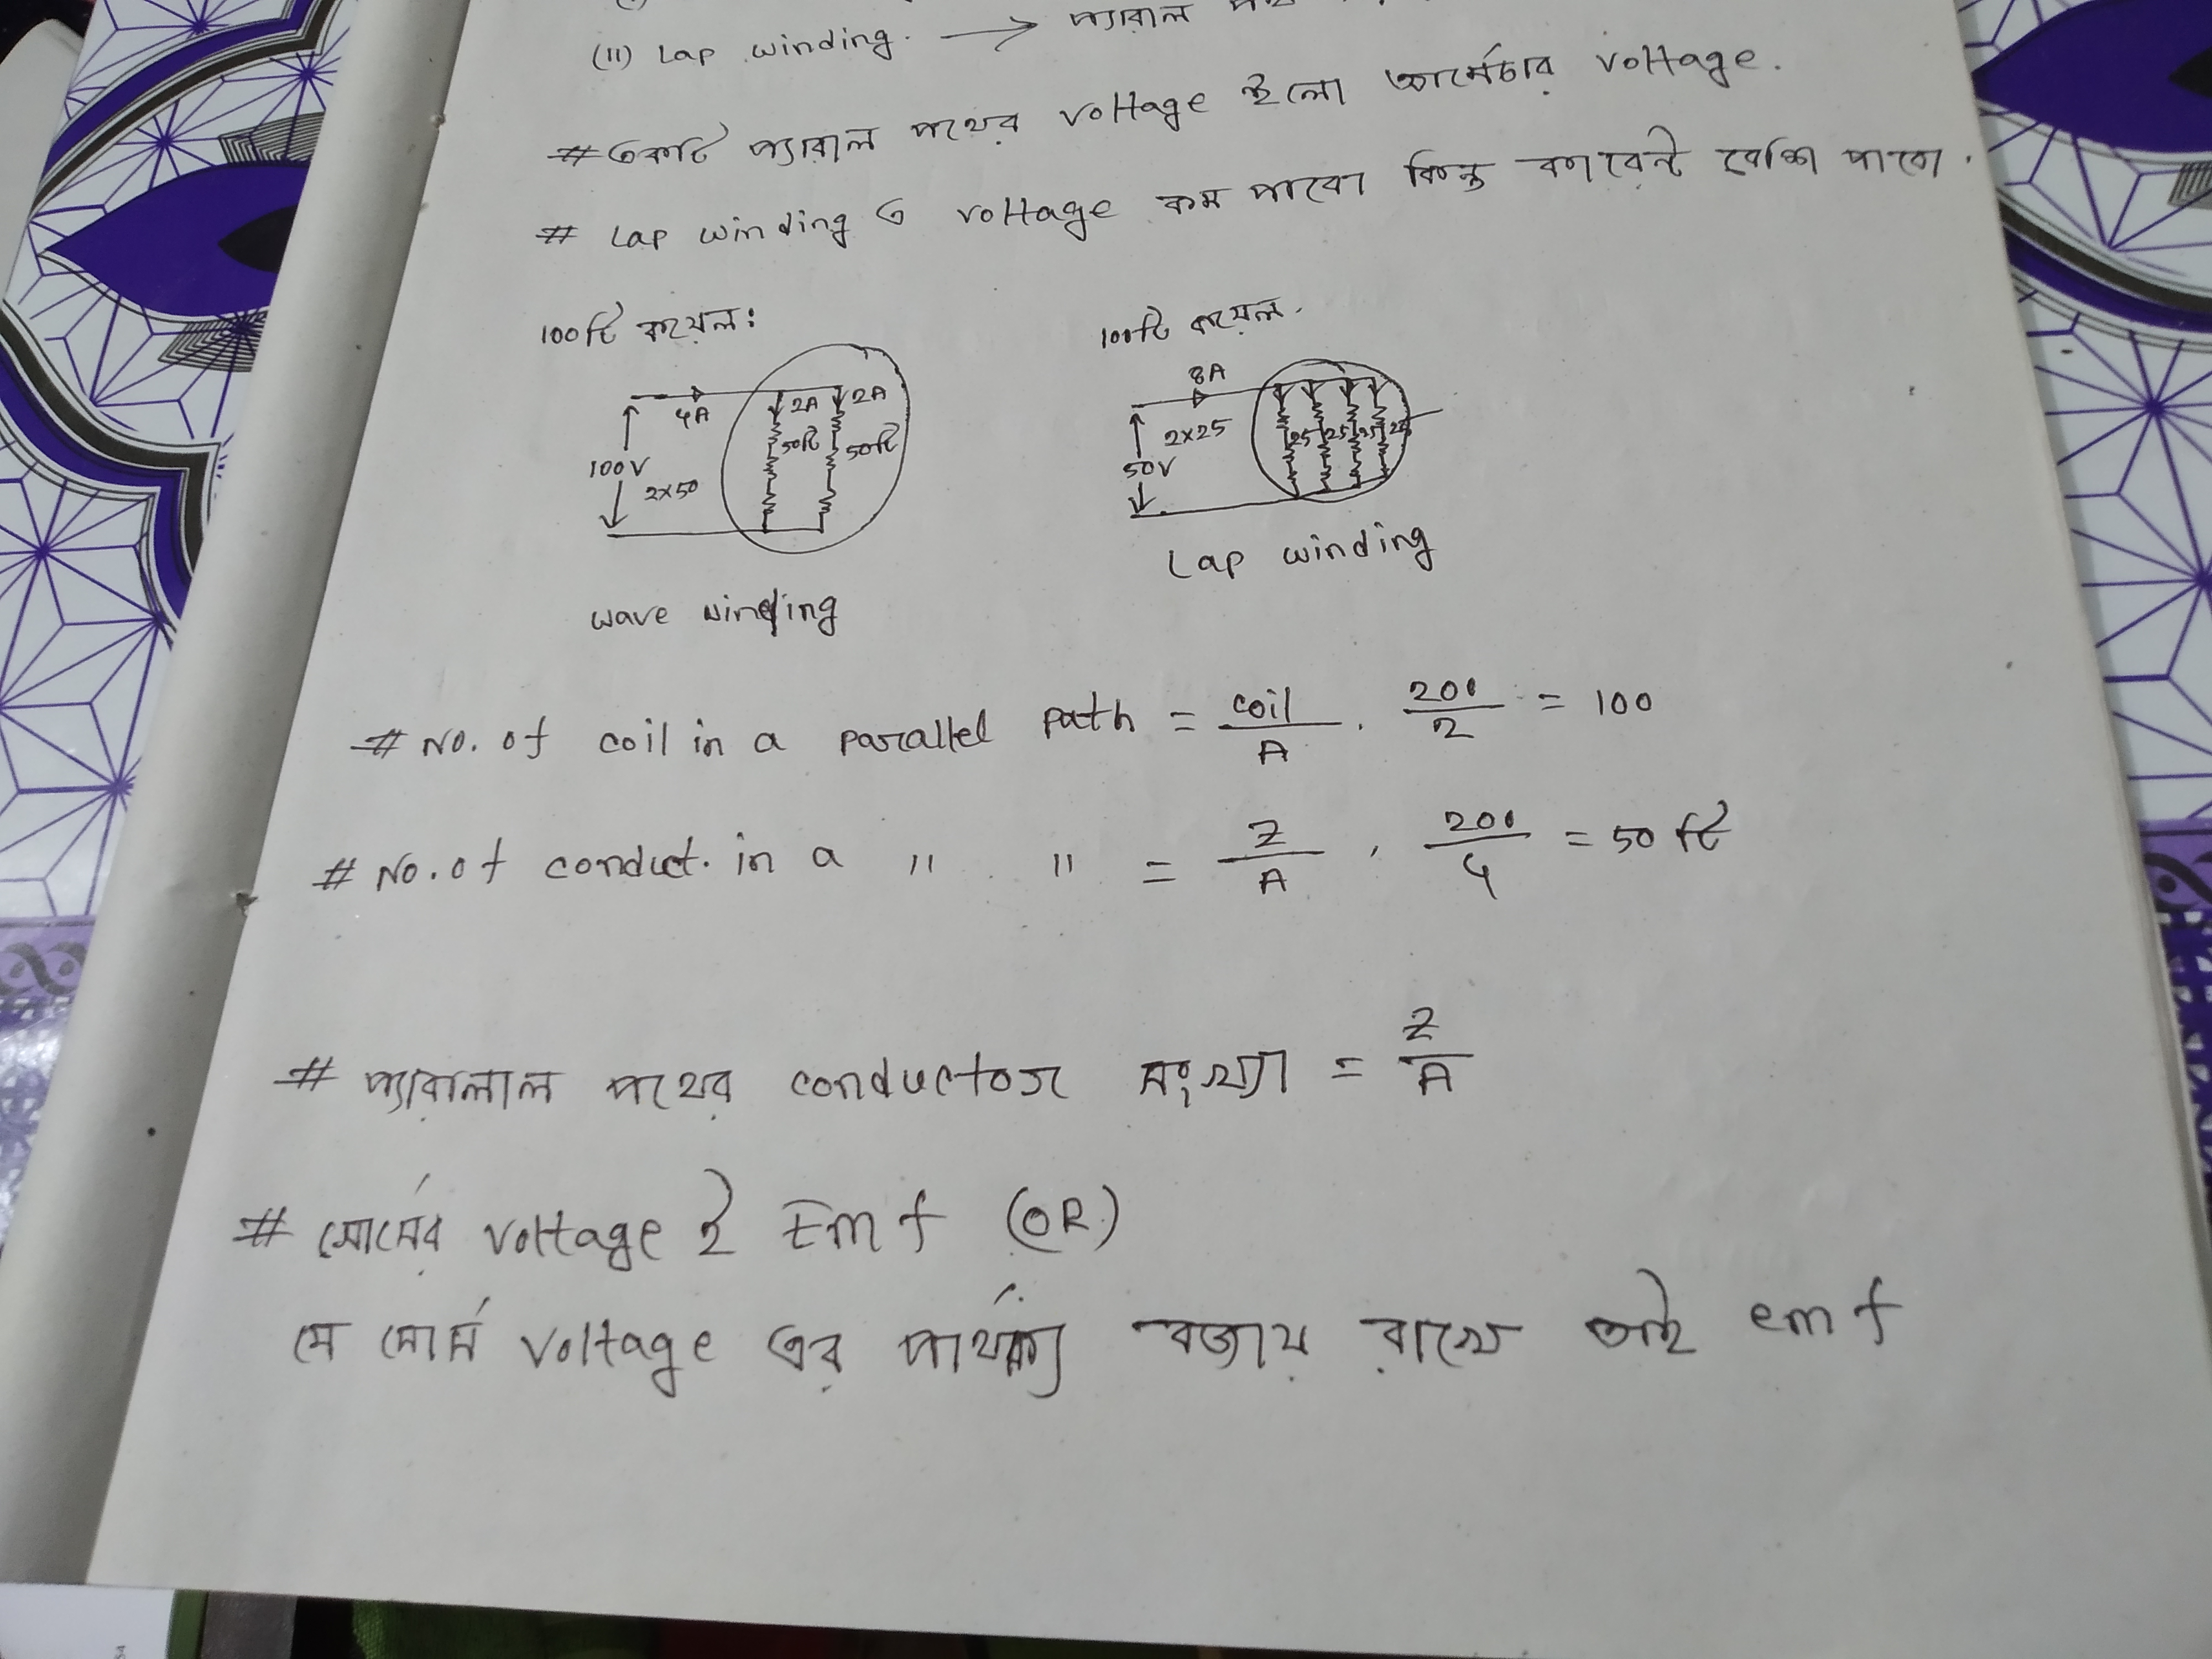 (II) Lap winding. → প্যারাল
# একটি প্যারাল পথের voltage ই হলো আর্মেচার voltage.
# Lap winding এ voltage কম পাবো কিন্তু কারেন্ট বেশি পাবো.
100টি কয়েল:
4A
2A
2A
50টি
50টি
100V
2x50
wave winding
100টি কয়েল.
8A
2x25
25
25
25
25
50V
Lap winding
# No. of coil in a parallel path = coil/A . 200/2 = 100
# No. of conduct. in a " " = Z/A , 200/4 = 50 টি
# প্যারালাল পথের conductor সংখ্যা = Z/A
# সোর্সের voltage ই Emf (OR)
যে সোর্স voltage এর পার্থক্য বজায় রাখে তাই emf